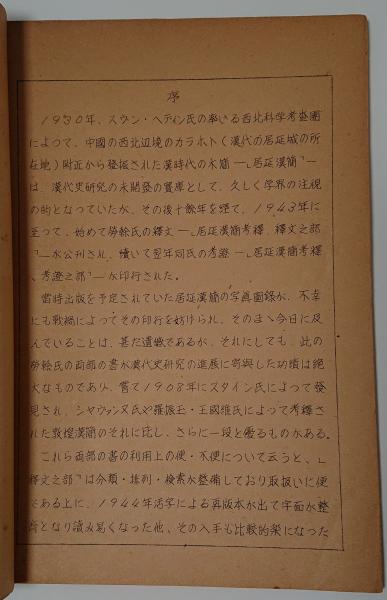 序
1930年、スウン・ヘディン氏の率いる西北科学考査團
によつて、中國の西北辺境のカラホト(漢代の居延城の所
在地)附近から發掘された漢時代の木簡―「居延漢簡」―
は、漢代史研究の未開發の寶庫として、久しく学界の注視
の的となつていたが、その後十餘年を経て、1943年に
至つて、始めて勞榦氏の釋文―「居延漢簡考釋、釋文之部
」―が公刊され、續いて翌年同氏の考證―「居延漢簡考釋
、考證之部」―が印行された。
當時出版を予定されていた居延漢簡の写真圖錄が、不幸
にも戰禍によつてその印行を妨げられ、そのまゝ今日に及
んでいることは、甚だ遺憾であるが、それにしても、此の
勞榦氏の両部の書が漢代史研究の進展に寄與した功績は絶
大なものであり、嘗て1908年にスタイン氏によつて發
見され、シャヴァンヌ氏や羅振玉・王國維氏によつて考釋さ
れた敦煌漢簡のそれに比し、さらに一段と優るものがある。
これら両部の書の利用上の便・不便について云うと、「
釋文之部」は分類・排列・検索が整備しており取扱いに便
である上に、1944年活字による再版本が出て字面が整
齊となり讀み易くなつた他、その入手も比較的楽になつた